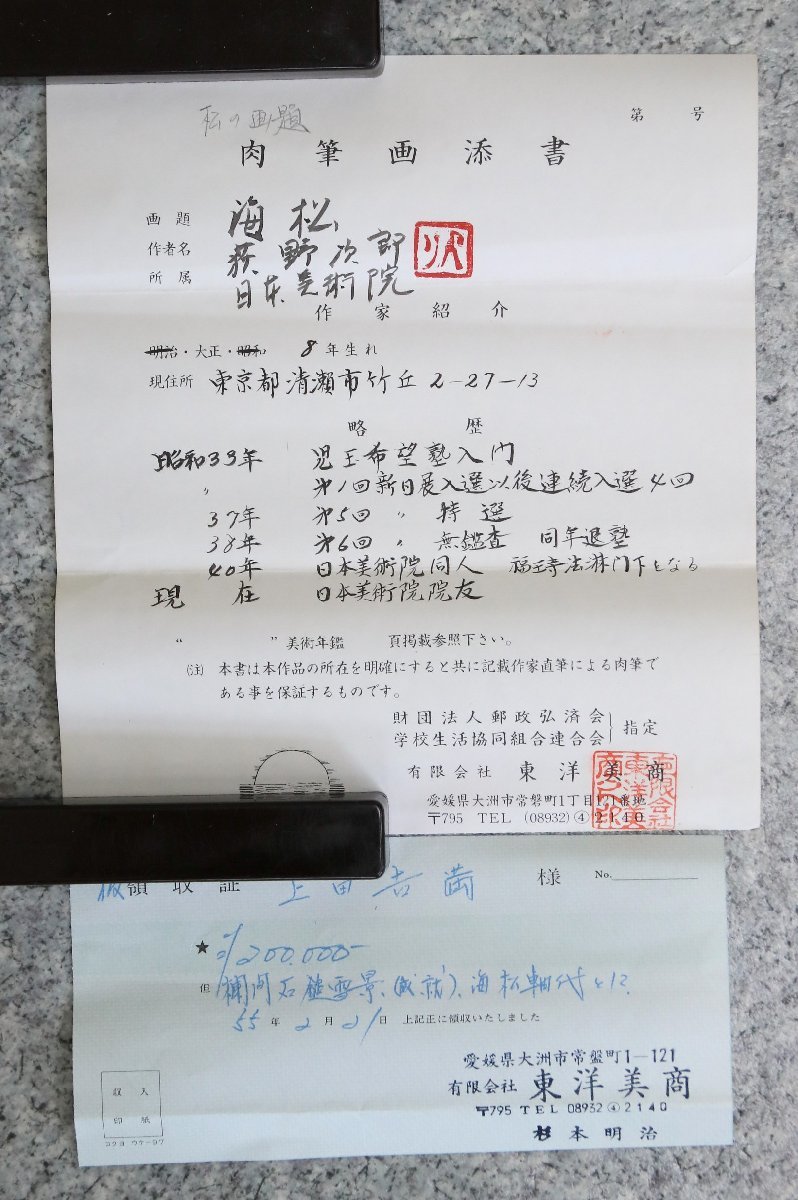 第 号
私の画題
肉筆画添書
画題 海松
作者名 萩野次郎
所属 日本美術院
作家紹介
明治・大正・昭和 8年生れ
現住所 東京都清瀬市竹丘2-27-13
略歴
昭和33年 児玉希望塾入門
〃 第1回新日展入選以後連続入選4回
37年 第5回 〃 特選
38年 第6回 〃 無鑑査 同年退塾
40年 日本美術院同人 福王寺法林門下となる
現在 日本美術院院友
“ ”美術年鑑 頁掲載参照下さい。
(注) 本書は本作品の所在を明確にすると共に記載作家直筆による肉筆で
ある事を保証するものです。
財団法人郵政弘済会
学校生活協同組合連合会 指定
有限会社 東洋美商
愛媛県大洲市常磐町1丁目121番地
〒795 TEL (08932)④2140
領収証 上田吉 様 No.
★ 200.000-
但 欄間石鎚雪景、(成就)、海松軸代として
55年2月21日 上記正に領収いたしました
愛媛県大洲市常盤町1-121
有限会社 東洋美商
〒795 TEL 08932④2140
杉本明治
収入
印紙